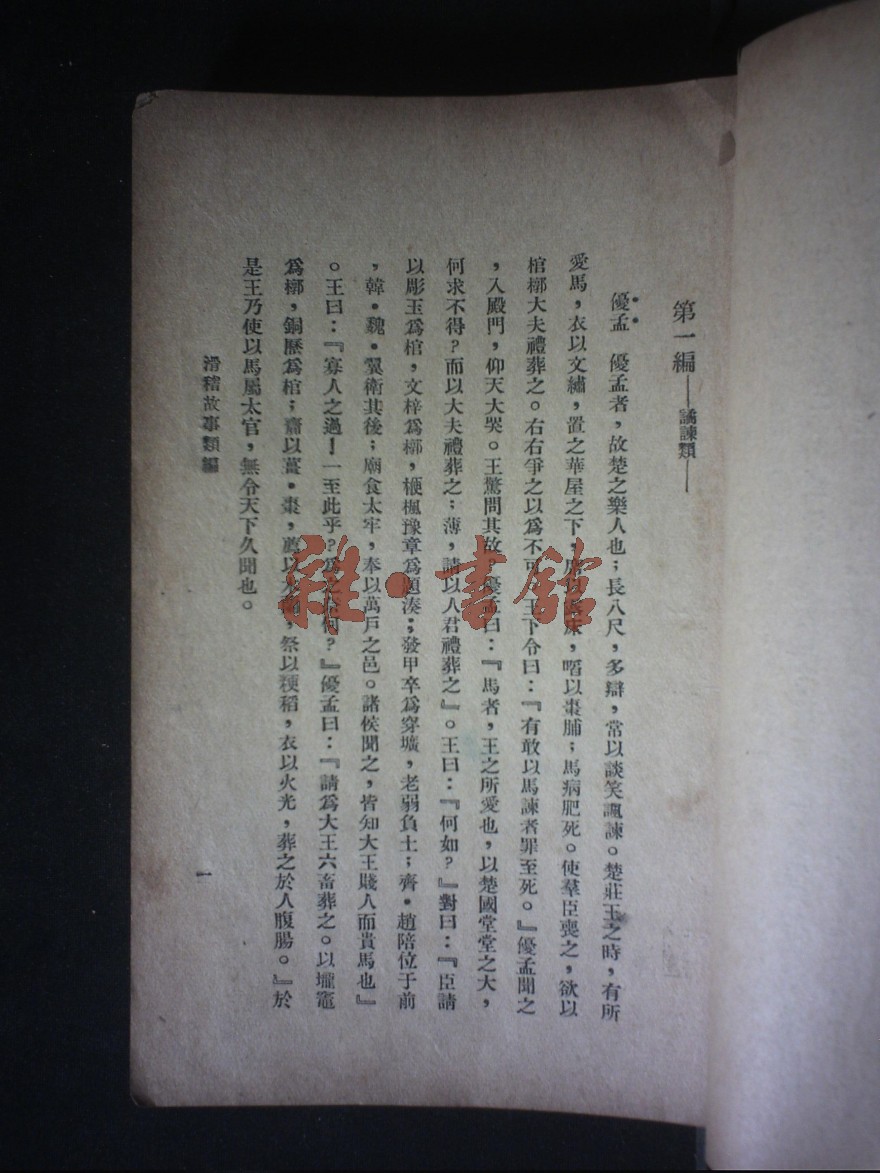 第一編——譎諫類——
優孟　優孟者，故楚之樂人也；長八尺，多辯，常以談笑諷諫。楚莊王之時，有所
愛馬，衣以文繡，置之華屋之下，席以床，啗以棗脯；馬病肥死。使羣臣喪之，欲以
棺槨大夫禮葬之。右右爭之以爲不可。王下令曰：『有敢以馬諫者罪至死。』優孟聞之
，入殿門，仰天大哭。王驚問其故？優孟曰：『馬者，王之所愛也，以楚國堂堂之大，
何求不得？而以大夫禮葬之；薄，請以人君禮葬之』。王曰：『何如？』對曰：『臣請
以彫玉爲棺，文梓爲槨，楩楓豫章爲題湊；發甲卒爲穿壙，老弱負土；齊•趙陪位于前
，韓•魏•翼衛其後；廟食太牢，奉以萬戶之邑。諸侯聞之，皆知大王賤人而貴馬也』
。王曰：『寡人之過！一至此乎？爲之何？』優孟曰：『請爲大王六畜葬之。以壠竈
爲槨，銅歷爲棺；齎以薑•棗，薦以木蘭，祭以粳稻，衣以火光，葬之於人腹腸。』於
是王乃使以馬屬太官，無令天下久聞也。
滑稽故事類編
一
雜•書館